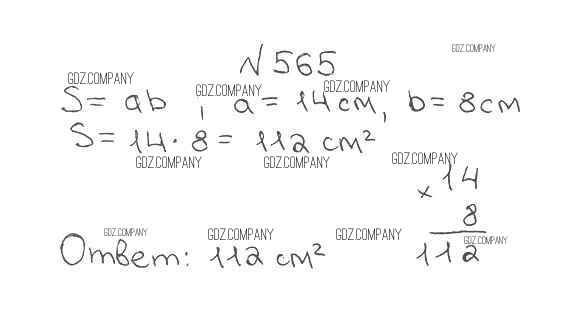 N 565
GDZ.COMPANY
GDZ.COMPANY
GDZ.COMPANY GDZ.COMPANY
S = ab, a = 14 см, b = 8 см
S = 14 · 8 = 112 см²
GDZ.COMPANY GDZ.COMPANY GDZ.COMPANY
14
× 8
112
GDZ.COMPANY GDZ.COMPANY GDZ.COMPANY GDZ.COMPANY
Ответ: 112 см²